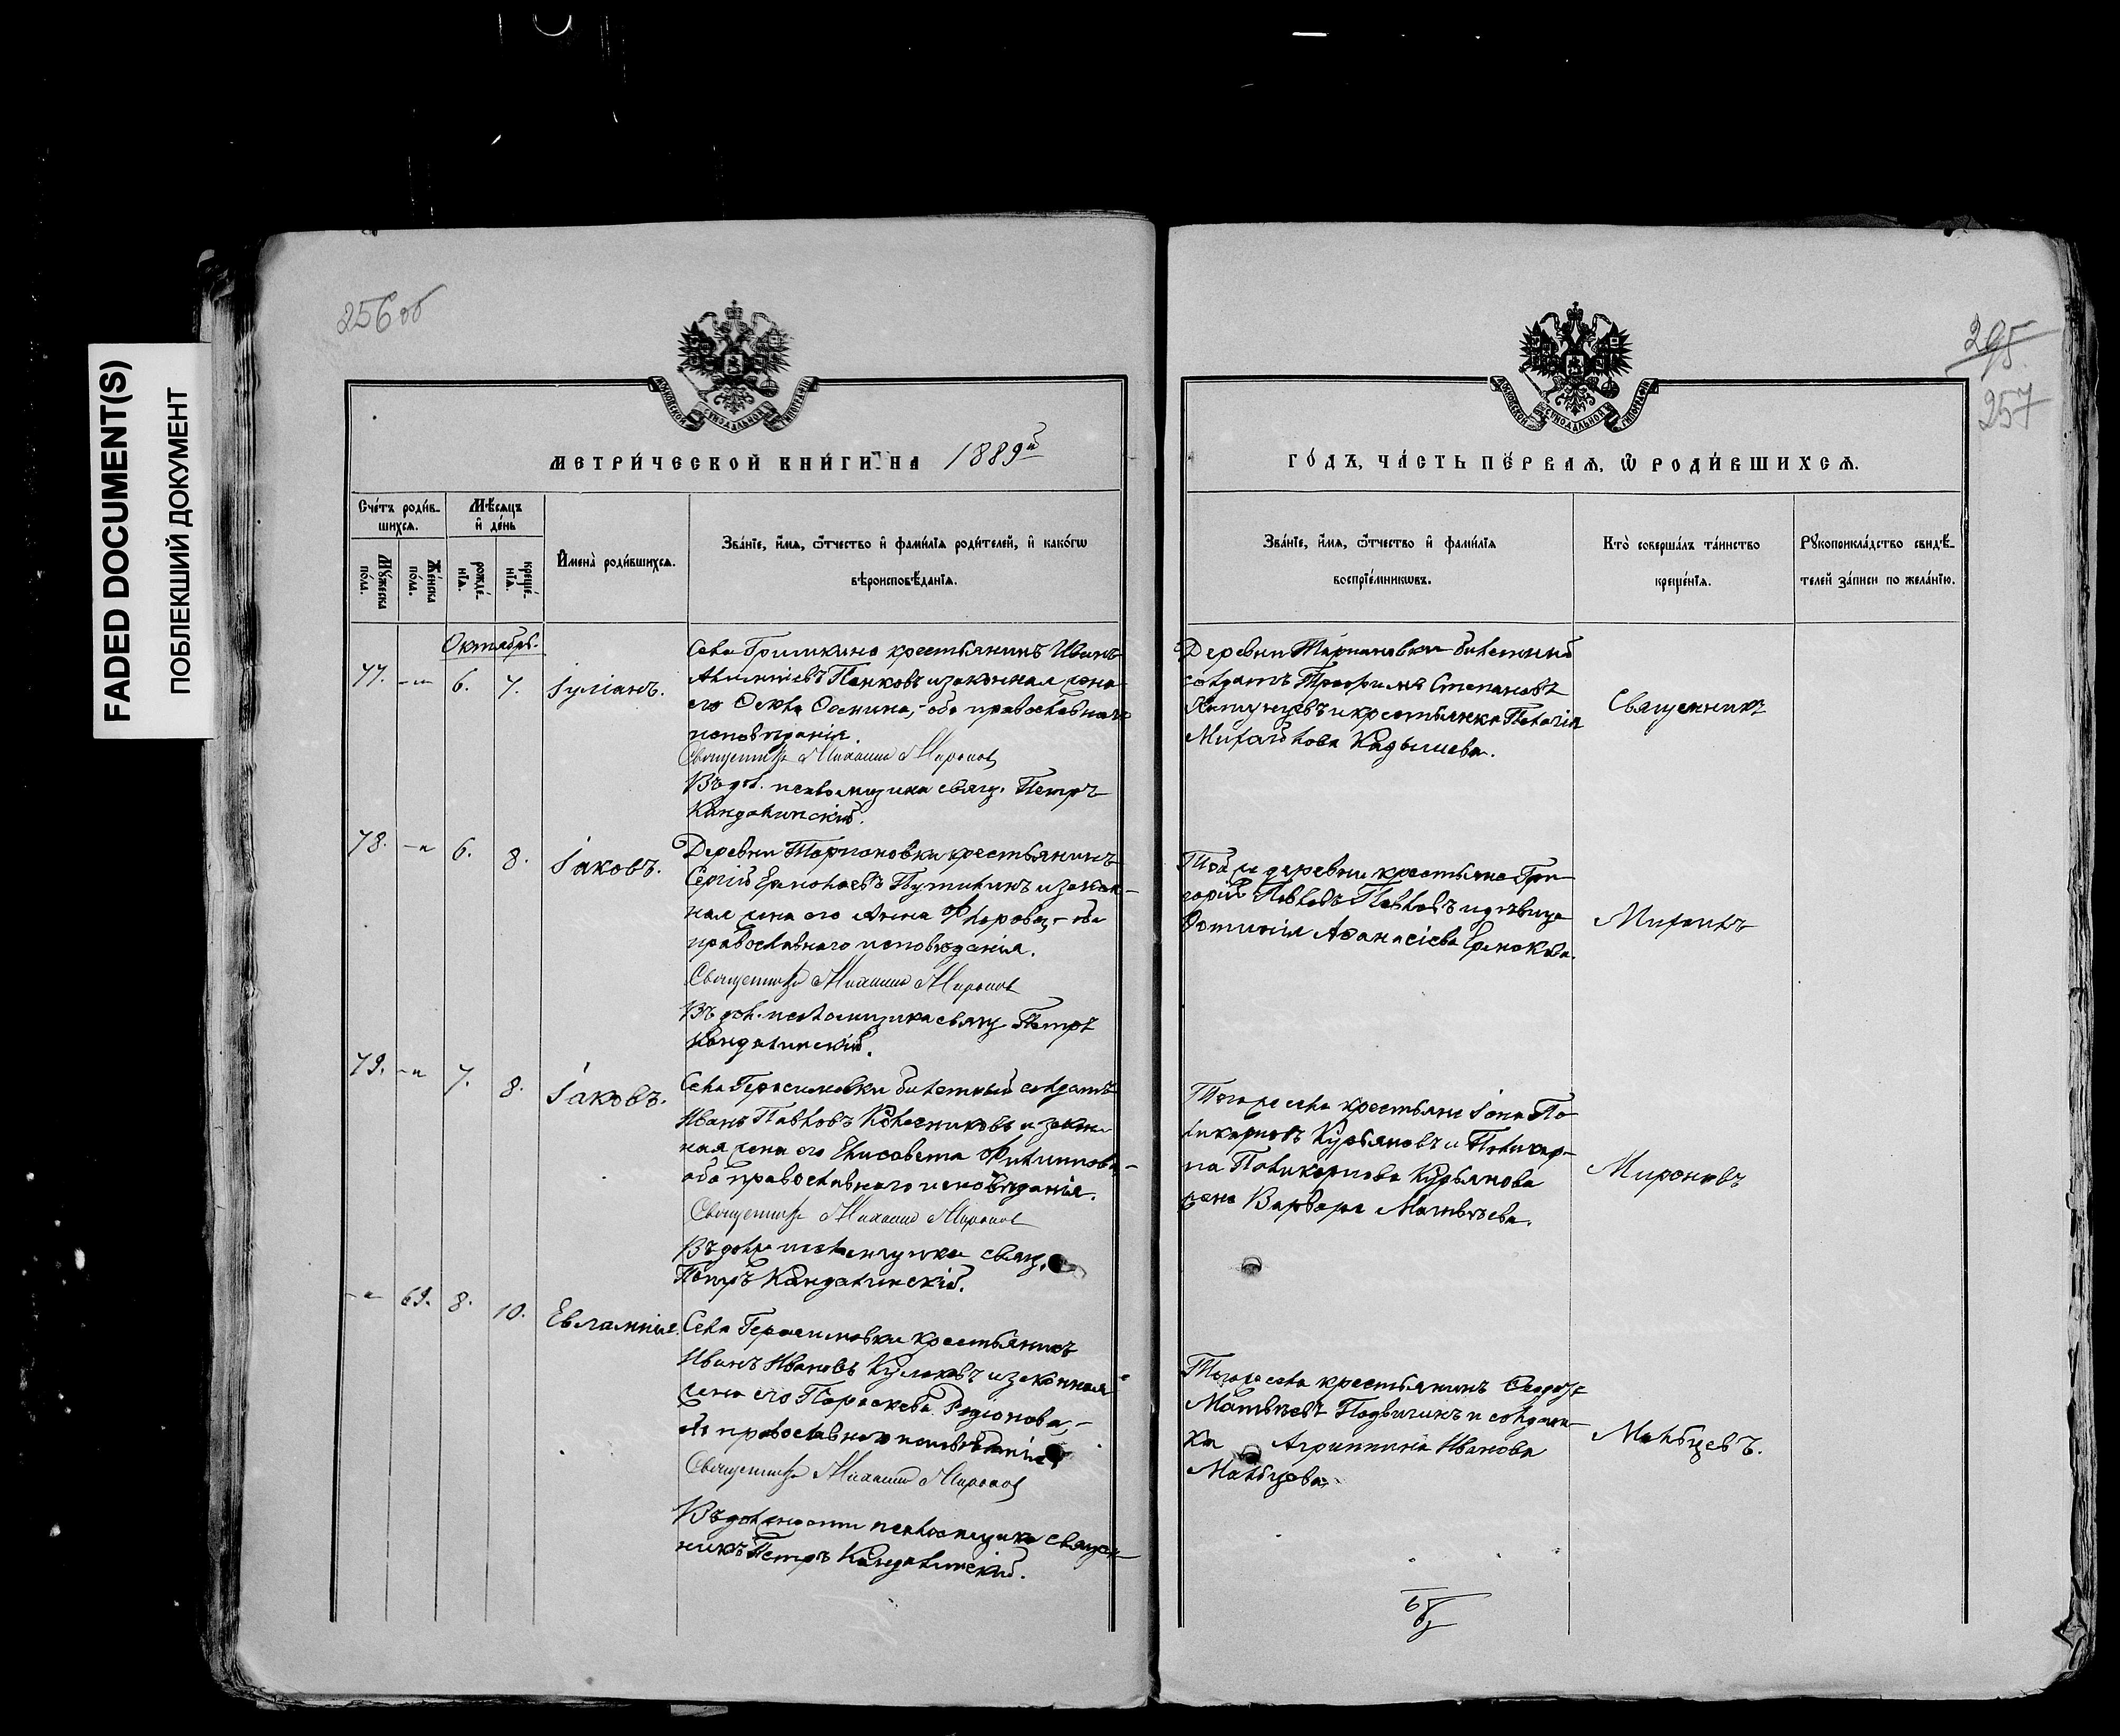 FADED DOCUMENT(S)
ПОБЛЕКШИЙ ДОКУМЕНТ
256 об
295
257
МЕТРИ́ЧЕСКОЙ КНИ́ГИ НА 1889й
ГО́ДЪ, ЧА́СТЬ ПЕ́РВАѦ, Ѡ҆ РОДИ́ВШИХСѦ.
МОСКОВСКОЙ СИНОДАЛЬНОЙ ТИПОГРАФІИ
МОСКОВСКОЙ СИНОДАЛЬНОЙ ТИПОГРАФІИ
Сче́тъ роди́в-
шихсѧ.
Мѣ́сѧцъ
и҆ де́нь
Мꙋ́жеска
по́ла.
Же́нска
по́ла.
рожде́-
нїѧ.
креще́-
нїѧ.
И҆мена̀ роди́вшихсѧ.
Зва́нїе, и҆́мѧ, ѻ҆́тчество и҆ фами́лїѧ роди́телей, и҆ како́гѡ
вѣроисповѣ́данїѧ.
Зва́нїе, и҆́мѧ, ѻ҆́тчество и҆ фами́лїѧ
воспрїе́мникѡвъ.
Кто̀ соверша́лъ та́инство
креще́нїѧ.
Рꙋкоприкла́дство свидѣ́-
телей за́писи по жела́нїю.
Октябрь.
77. -„- 6. 7. Іуліанъ.
Села Гришкино крестьянинъ Иванъ
Панковъ и законная жена
его Оекла Оомина, - оба православнаго
исповѣданія.
Священникъ Михаилъ Мироновъ
Въ дол. псаломщика свящ. Петръ
Кандалинскій.
Деревни Таржановки билетный
солдатъ Трофимъ Степановъ
и крестьянка Пелагія
Михайлова Кадышева.
Священникъ
78. -„ 6. 8. Іаковъ.
Деревни Таржановки крестьянинъ
Сергій Ермолаевъ Путилинъ и закон-
ная жена его Анна - оба
православнаго исповѣданія.
Священникъ Михаилъ Мироновъ
Въ дол. псаломщика свящ. Петръ
Кандалинскій.
Той же деревни крестьяне Гри-
горій Павловъ Павловъ и дѣвица
Фотинія Аѳанасіева Ермакова.
Михаилъ
79. -„ 7. 8. Іаковъ.
Села Герасимовки билетный солдатъ
Иванъ Павловъ Колесниковъ и закон-
ная жена его Елисавета Филиппова -
оба православнаго исповѣданія.
Священникъ Михаилъ Мироновъ
Въ долж. псаломщика свящ.
Петръ Кандалинскій.
Того же села крестьяне Іона По-
ликарповъ Курьяновъ и Поликар-
па Поликарпова Курьянова
жена Варвара Матвѣева.
Мироновъ
-„ 69. 8. 10. Евлампія.
Села Герасимовки крестьянинъ
Иванъ Ивановъ Кулаковъ и законная
жена его Параскева Родіонова, -
оба православнаго исповѣданія
Священникъ Михаилъ Мироновъ
Въ должности псаломщика священ-
никъ Петръ Кандалинскій.
Того же села крестьянинъ
Матвѣевъ и солдат-
ка Агриппина Иванова
Мальцева.
Мальцевъ.